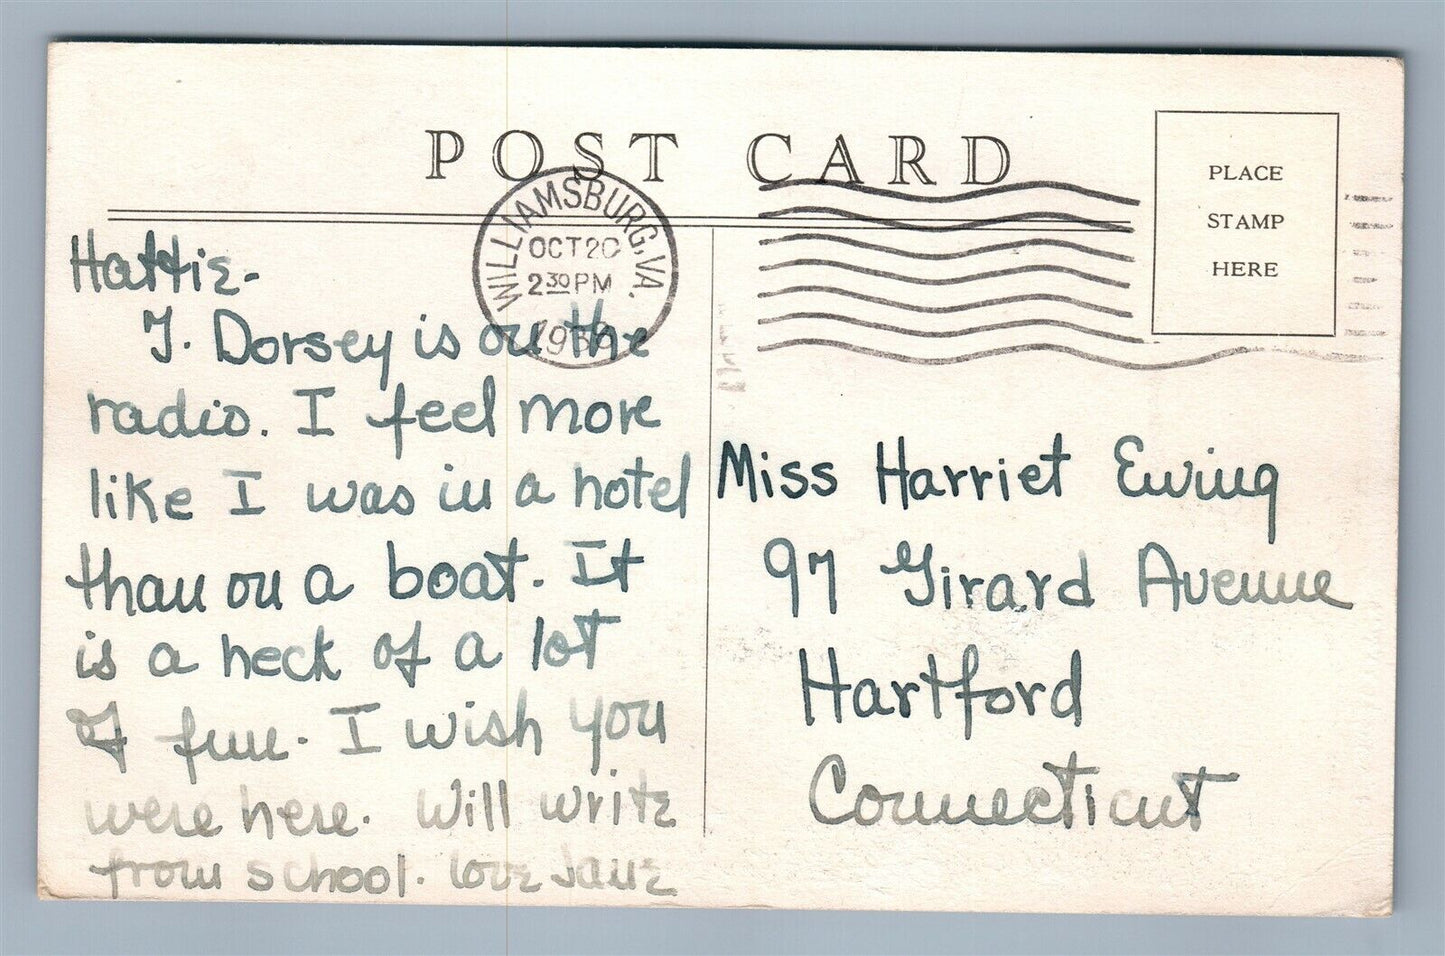 POST CARD
PLACE
STAMP
HERE
WILLIAMSBURG, VA.
OCT 20
2 30 PM
Hattie-
T. Dorsey is on the
radio. I feel more
like I was in a hotel
than on a boat. It
is a heck of a lot
of fun. I wish you
were here. Will write
from school. love Jane
Miss Harriet Ewing
97 Girard Avenue
Hartford
Connecticut